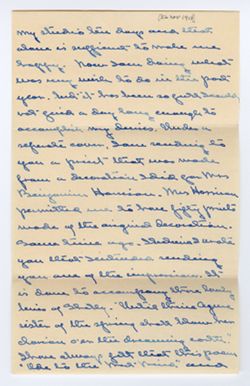 my studio ten days and that
alone is sufficient to make me
happy. Now I am doing what
was my wish to do in the past
year. But it has been so
not find a day long enough to
accomplish my desires. Under a
separate cover, I am sending to
you a print that was made
from a decoration I did for Mrs
Benjamin Harrison. Mrs Harrison
permitted me to have fifty prints
made of the original decoration.
Some time ago. I should state
you that I intended sending
you one of the impressions. It
is done to accompany three lovely
lines of Shelly. "Until thine azure
sister of the spring shall blow her
clarion o'er the dreaming earth."
I have always felt that this poem
"Ode to the West Wind" and